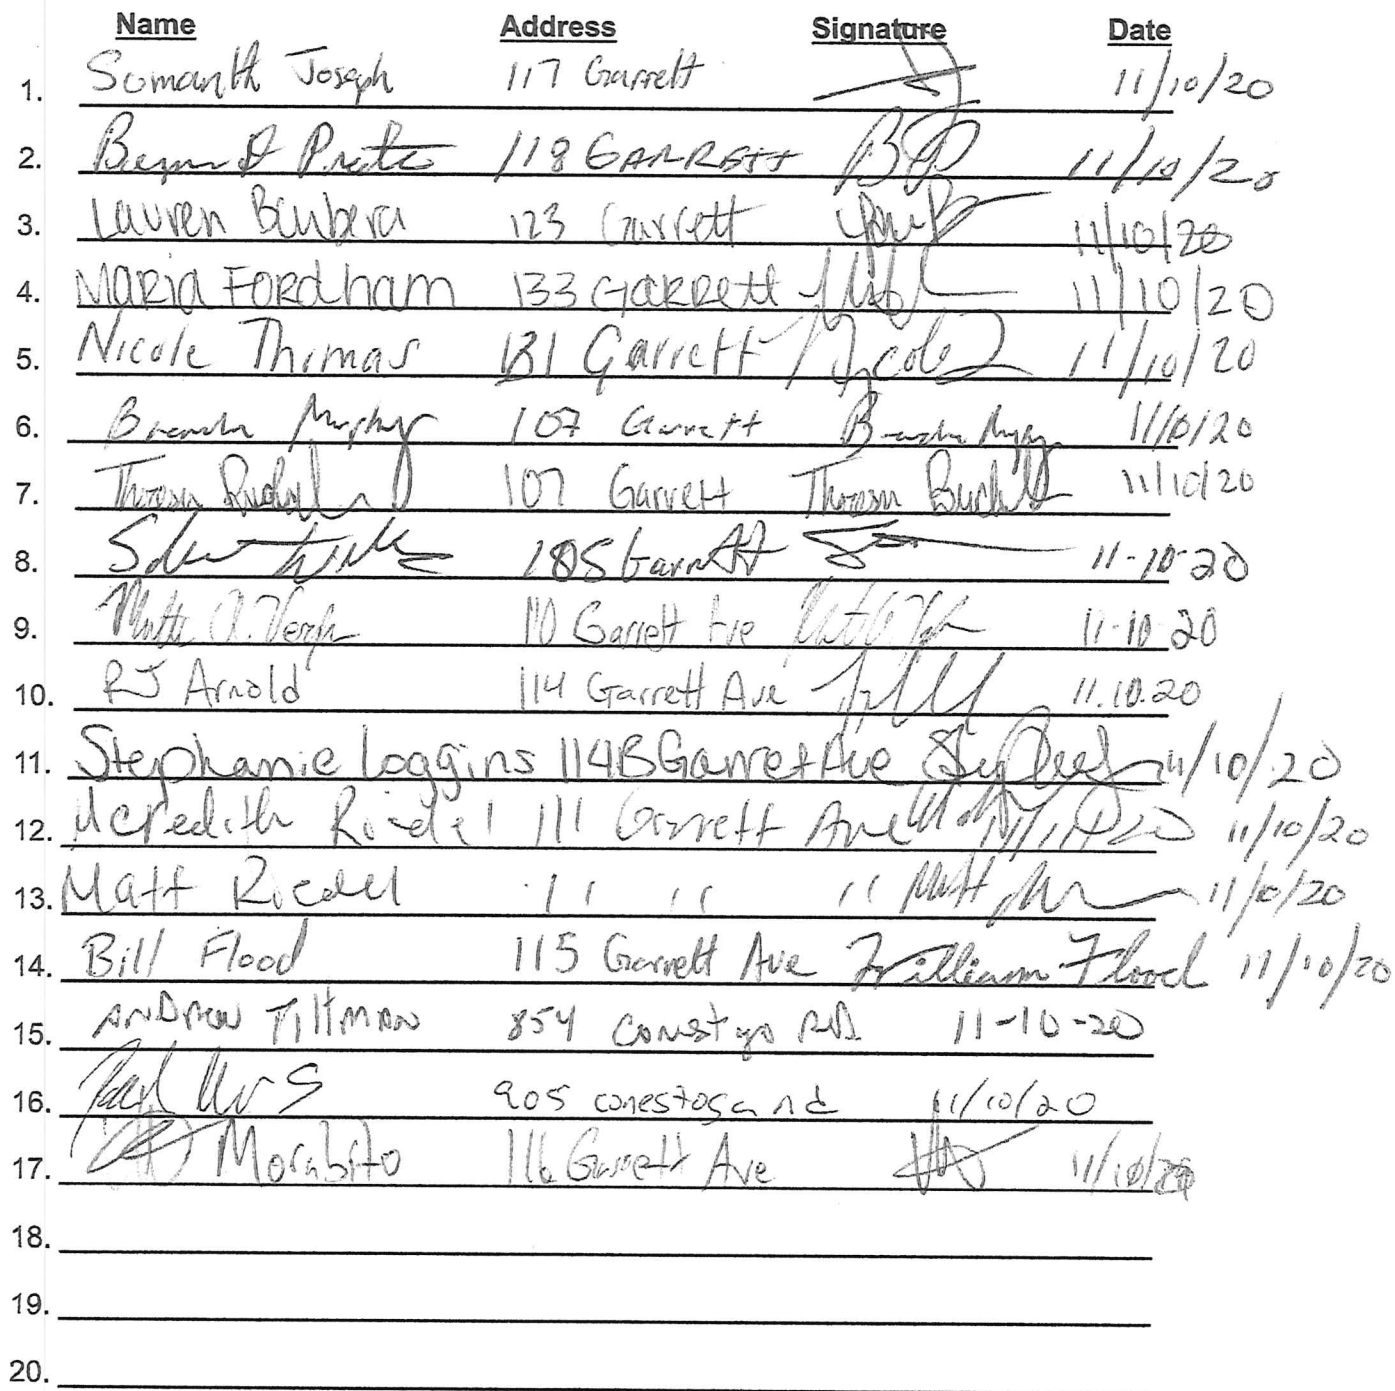 Name Address Signature Date
1. Somanth Joseph 117 Garrett 11/10/20
2. 118 GARRETT 11/10/20
3. Lauren Barbera 123 Garrett 11/10/20
4. MARIA FORDham 133 GARRETT 11/10/20
5. Nicole Thomas 131 Garrett Nicole 11/10/20
6. Murphy 107 Garrett 11/10/20
7. Theresa 107 Garrett Theresa 11/10/20
8. 105 Garrett 11-10-20
9. 110 Garrett Ave 11-10-20
10. RJ Arnold 114 Garrett Ave 11.10.20
11. Stephanie Loggins 114B Garret Ave 11/10/20
12. Meredith Riedel 111 Garrett Ave 11/10/20
13. Matt Riedel 11 11 11 Matt 11/10/20
14. Bill Flood 115 Garrett Ave William Flood 11/10/20
15. ANDREW TILTMAN 854 Conestoga RD 11-10-20
16. 905 conestoga rd 11/10/20
17. Morabito 116 Garrett Ave 11/10/20
18.
19.
20.